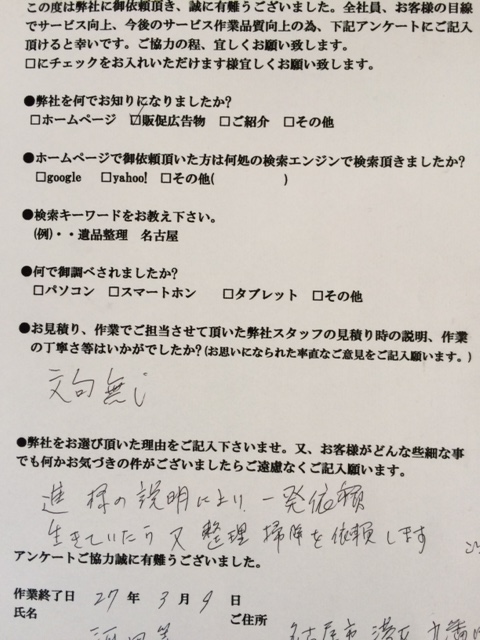 この度は弊社に御依頼頂き、誠に有難うございました。全社員、お客様の目線
でサービス向上、今後のサービス作業品質向上の為、下記アンケートにご記入
頂けると幸いです。ご協力の程、宜しくお願い致します。
□にチェックをお入れいただけます様宜しくお願い致します。
●弊社を何でお知りになりましたか?
□ホームページ ☑販促広告物 □ご紹介 □その他
●ホームページで御依頼頂いた方は何処の検索エンジンで検索頂きましたか?
□google □yahoo! □その他( )
●検索キーワードをお教え下さい。
(例)・・遺品整理 名古屋
●何で御調べされましたか?
□パソコン □スマートホン □タブレット □その他
●お見積り、作業でご担当させて頂いた弊社スタッフの見積り時の説明、作業
の丁寧さ等はいかがでしたか?(お思いになられた率直なご意見をご記入願います。)
文句無し
●弊社をお選び頂いた理由をご記入下さいませ。又、お客様がどんな些細な事
でも何かお気づきの件がございましたらご遠慮なくご記入願います。
進 様の説明により 一発依頼
生きていたら又 整理 掃除を依頼します
アンケートご協力誠に有難うございました。
作業終了日 27 年 3 月 9 日
氏名 ご住所
名古屋市 港区